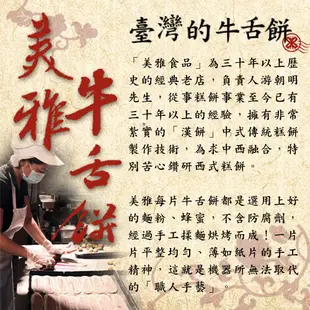 美雅
牛舌餅
臺灣的牛舌餅
「美雅食品」為三十年以上歷
史的經典老店，負責人游朝明
先生，從事糕餅事業至今已有
三十年以上的經驗，擁有非常
紮實的「漢餅」中式傳統糕餅
製作技術，為求中西融合，特
別苦心鑽研西式糕餅。
美雅每片牛舌餅都是選用上好
的麵粉、蜂蜜，不含防腐劑，
經過手工揉麵烘烤而成！一片
片平整均勻、薄如紙片的手工
精神，這就是機器所無法取代
的「職人手藝」。